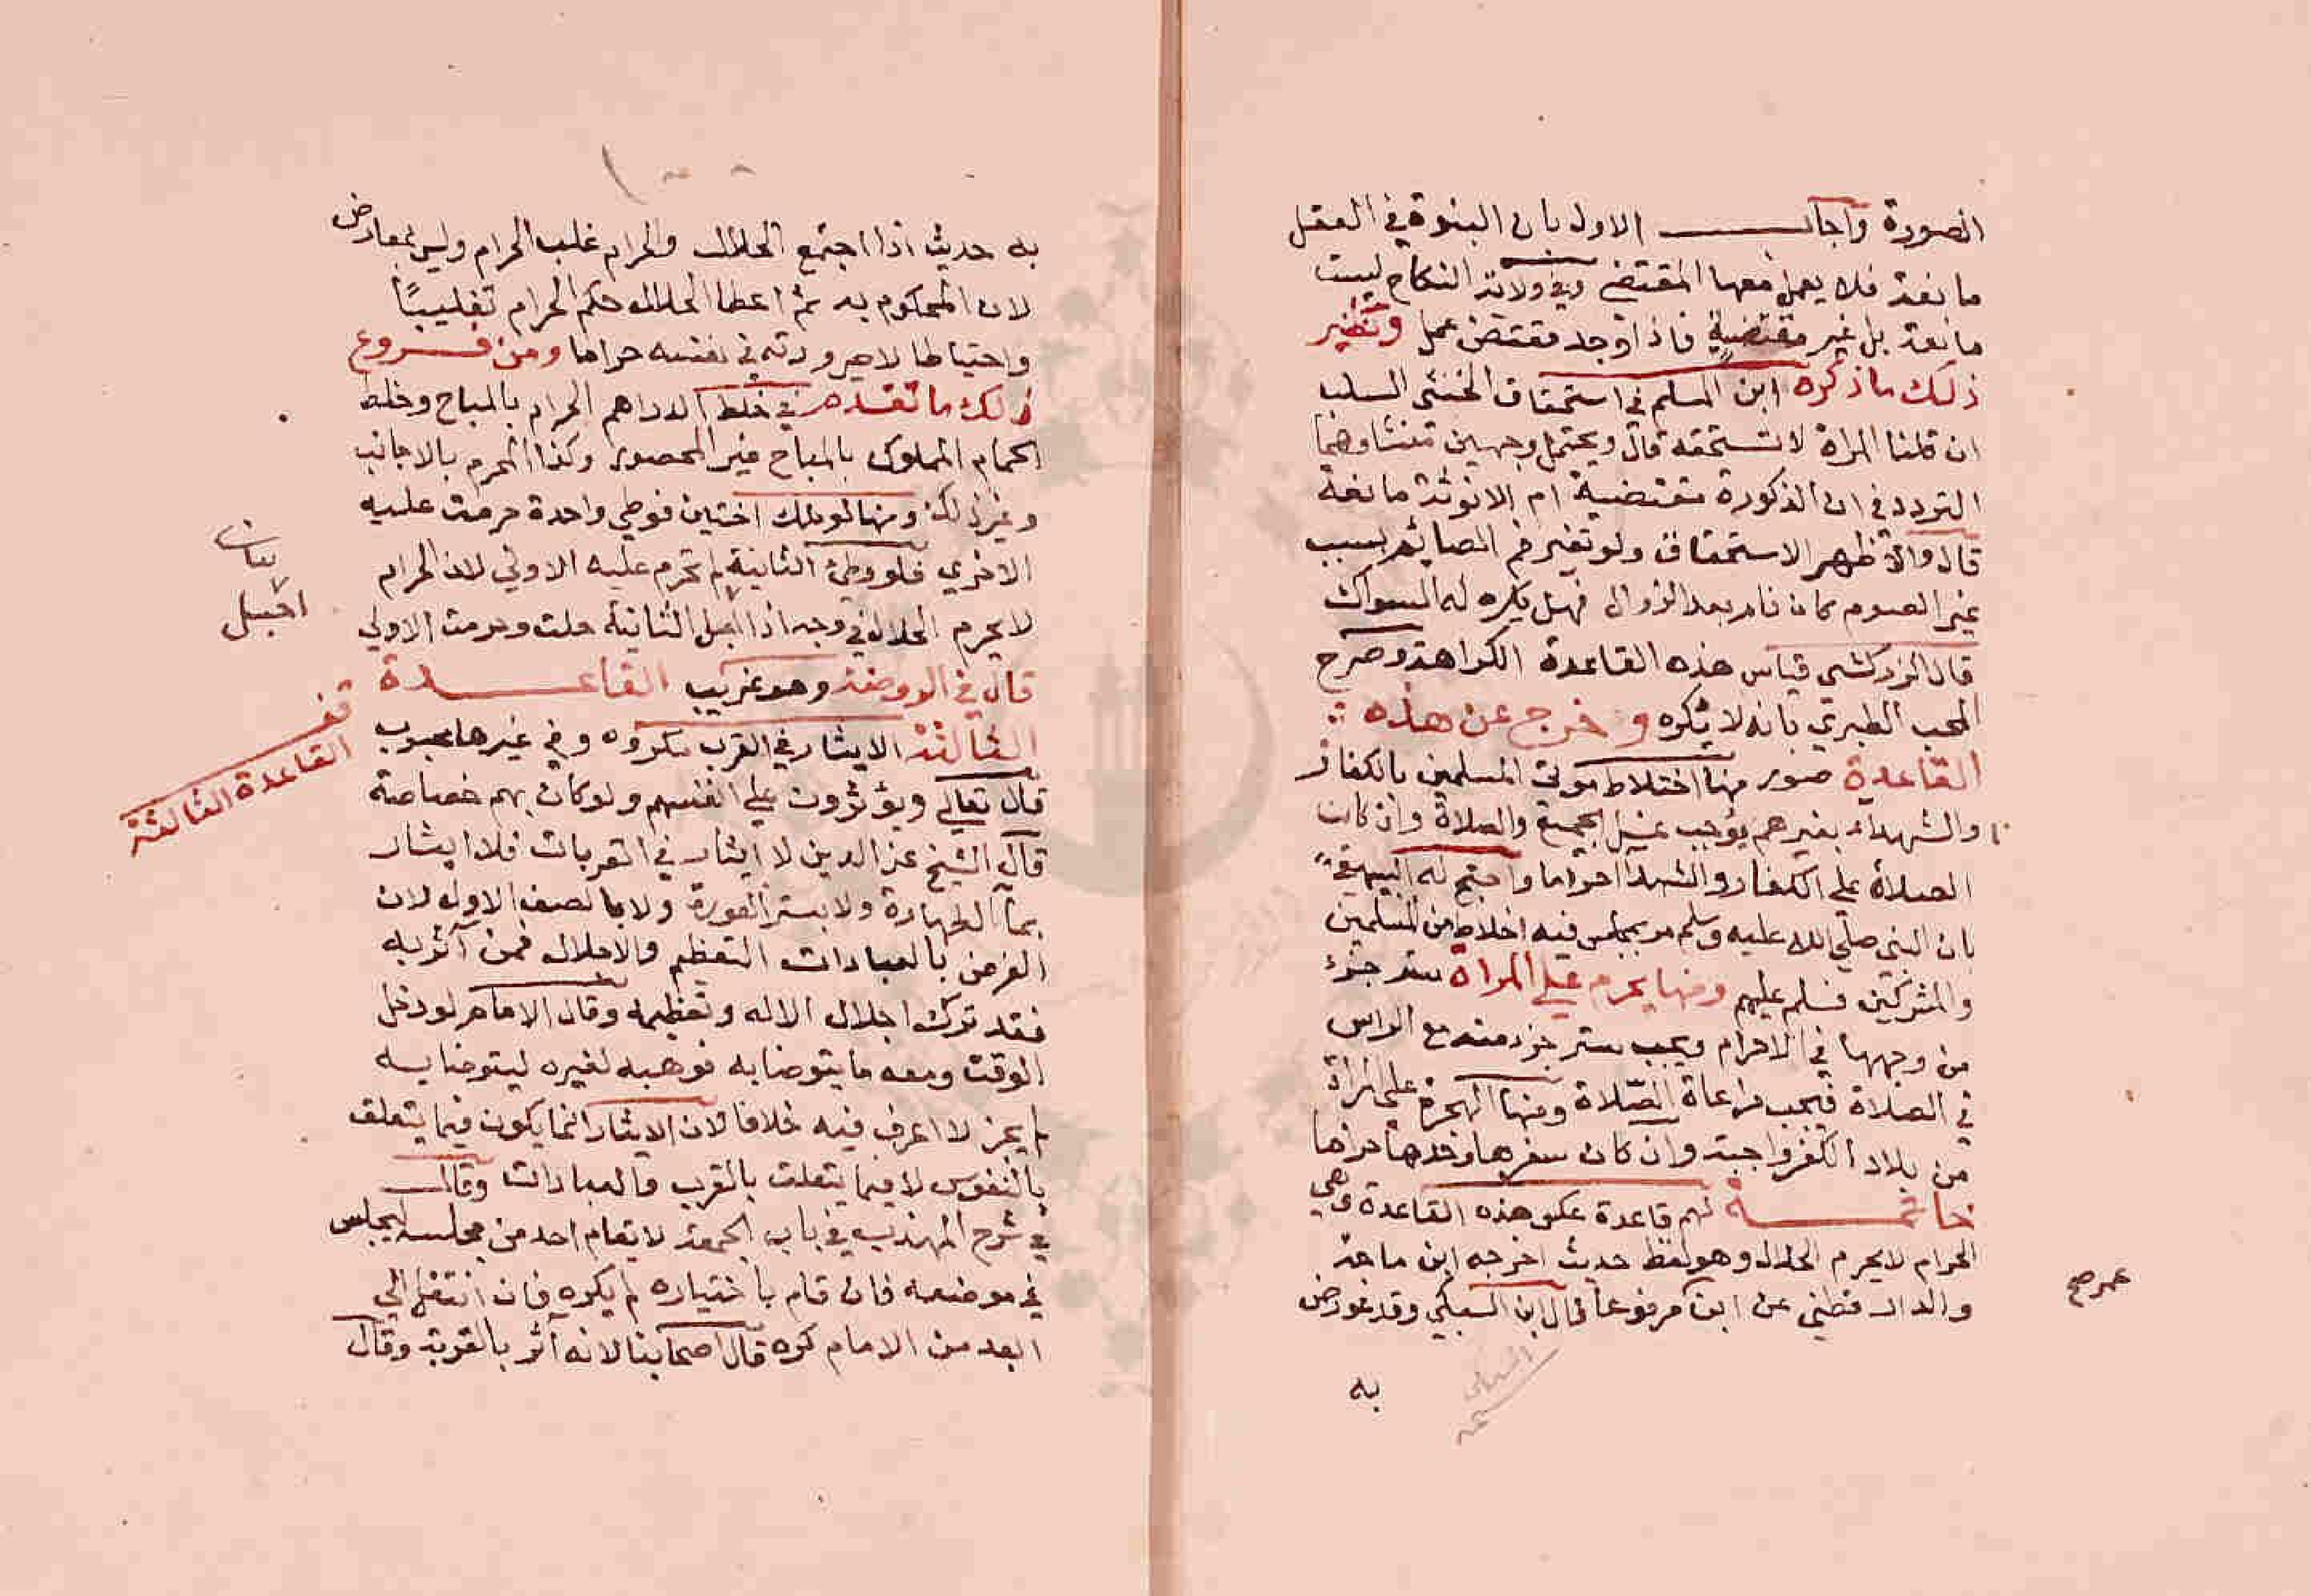 الصورة واجاب الاول بان البنوة في العقل
مانعة فلا يعمل معها المقتضي وفي ولاية النكاح ليست
مانعة بل غير مقتضية فاذا وجد مقتض عمل ونظير
ذلك ما ذكره ابن المسلم في استحقاق الخنثى السلب
ان قلنا المراة لا تستحقه قال ويحتمل وجهين منشاوهما
التردد في ان الذكورة مقتضية ام الانوثة مانعة
قال والاظهر الاستحقاق ولو تغير فم الصائم بسبب
غير الصوم كان نام بعد الزوال فهل يكره له السواك
قال الزركشي قياس هذه القاعدة الكراهة وصرح
المحب الطبري بانه لا يكره وخرج عن هذه
القاعدة صور منها اختلاط موتى المسلمين بالكفار
والشهداء بغيرهم يوجب غسل الجميع والصلاة وان كان
الصلاة على الكفار والشهدا حراما واحتج له البيهقي
بان النبي صلى الله عليه وسلم مر بمجلس فيه اخلاط من المسلمين
والمشركين فسلم عليهم ومنها يحرم على المراة ستر جزء
من وجهها في الاحرام ويجب ستر جزء منه مع الراس
في الصلاة فيجب مراعاة الصلاة ومنها الهجرة على المراة
من بلاد الكفر واجبة وان كان سفرها وحدها حراما
خاتمة لهم قاعدة عكس هذه القاعدة وهي
الحرام لا يحرم الحلال وهو لفظ حديث اخرجه ابن ماجة
والدارقطني عن ابن مرفوعا قال ابن السبكي وقد عورض
عمر صح
به
به حديث اذا اجتمع الحلال والحرام غلب الحرام وليس بمعارض
لان المحكوم به ثم اعطا الحلال حكم الحرام تغليبًا
واحتياطا لا صيرورته في نفسه حراما ومن فروع
ذلك ما تقدم في خلط الدراهم الحرام بالمباح وخلط
الحمام المملوك بالمباح غير المحصور وكذا المحرم بالاجانب
وغير ذلك ومنها لو ملك اختين فوطي واحدة حرمت عليه
الاخري فلو وطئ الثانية لم تحرم عليه الاولي لان الحرام
لا يحرم الحلال في وجه اذا احبل الثانية حلت وحرمت الاولي
احبل
قال في الروضة وهو غريب القاعدة
الثالثة الايثار في القرب مكروه وفي غيرها محبوب
قف
القاعدة الثالثة
قال تعالي ويؤثرون علي انفسهم ولو كان بهم خصاصة
قال الشيخ عز الدين لا ايثار في القربات فلا ايثار
بماء الطهارة ولا بستر العورة ولا بالصف الاول لان
الغرض بالعبادات التعظيم والاجلال فمن آثر به
فقد ترك اجلال الاله وتعظيمه وقال الامام لو دخل
الوقت ومعه ما يتوضا به فوهبه لغيره ليتوضا به
لم يجز لا اعرف فيه خلافا لان الايثار انما يكون فيما يتعلق
بالنفوس لا فيما يتعلق بالقرب والعبادات وقال
في شرح المهذب في باب الجمعة لا يقام احد من مجلسه ليجلس
في موضعه فان قام باختياره لم يكره فان انتقل الي
ابعد من الامام كره قال اصحابنا لانه آثر بالقربة وقال